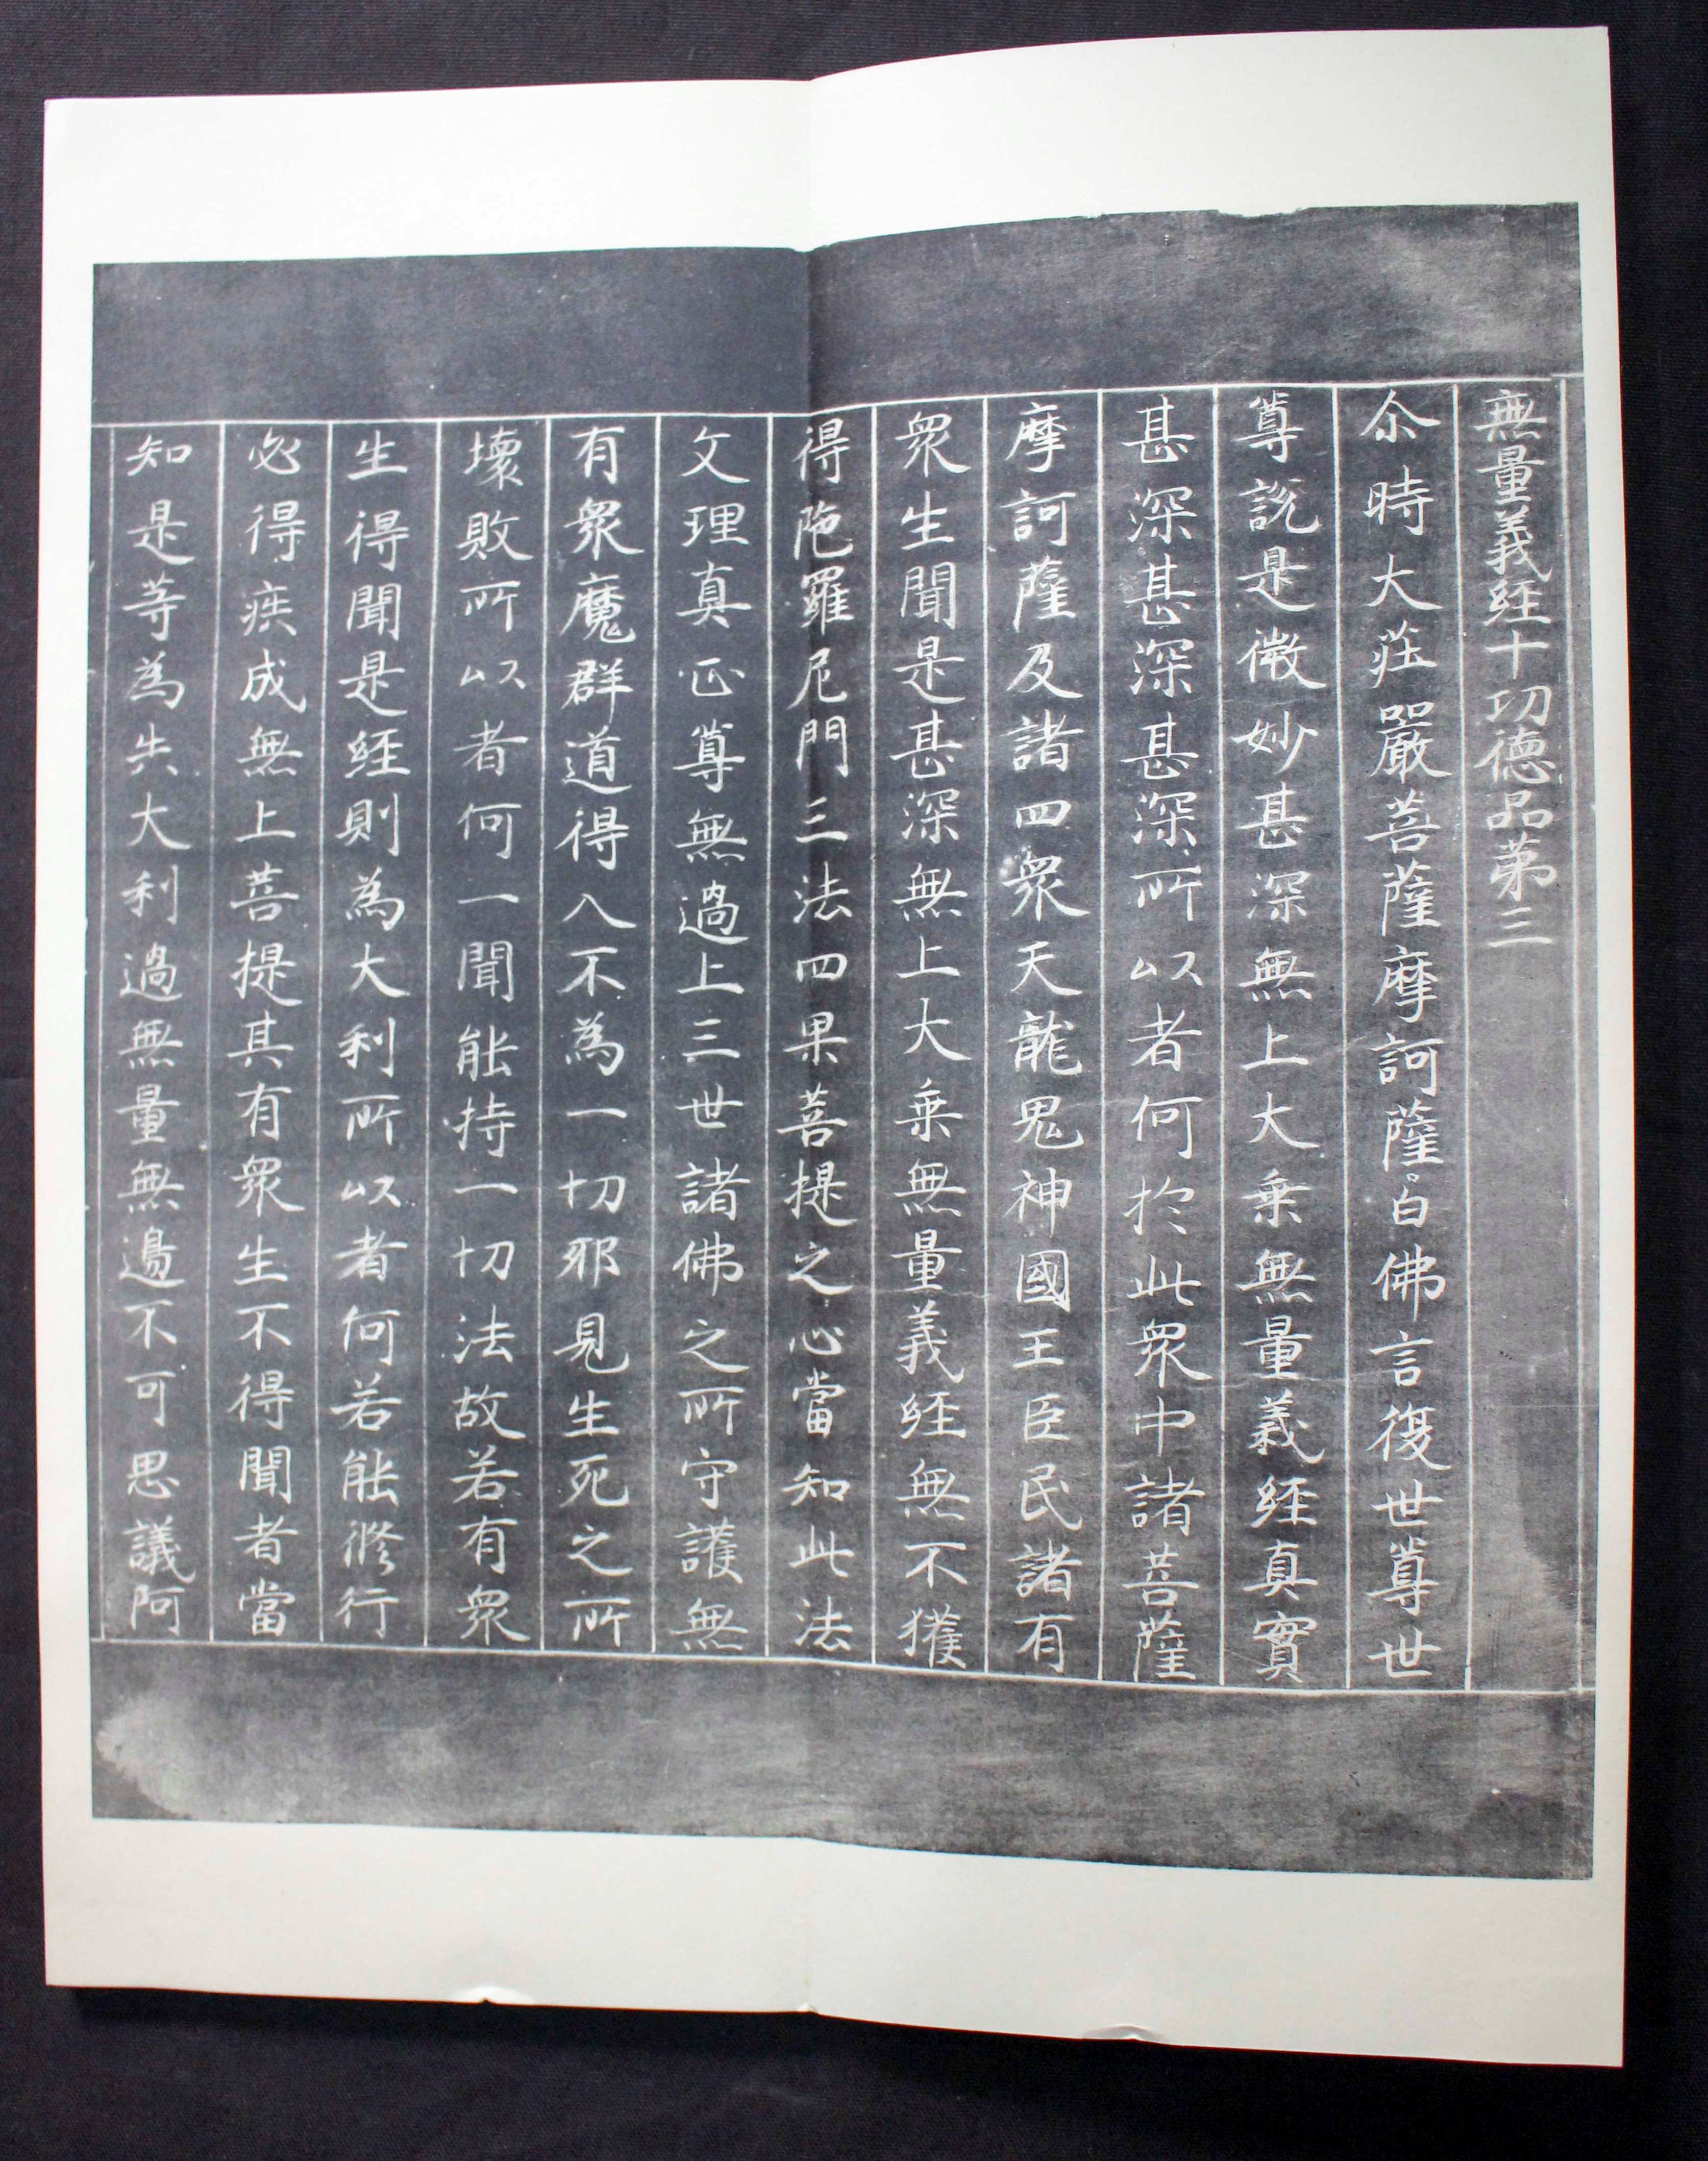 無量義経十功德品第三
尒時大莊嚴菩薩摩訶薩白佛言復世尊世
尊說是微妙甚深無上大乘無量義経真實
甚深甚深甚深所以者何於此衆中諸菩薩
摩訶薩及諸四衆天龍鬼神國王臣民諸有
衆生聞是甚深無上大乘無量義経無不獲
得陁羅尼門三法四果菩提之心當知此法
文理真正尊無過上三世諸佛之所守護無
有衆魔群道得入不為一切邪見生死之所
壞敗所以者何一聞能持一切法故若有衆
生得聞是経則為大利所以者何若能修行
必得疾成無上菩提其有衆生不得聞者當
知是等為失大利過無量無邊不可思議阿